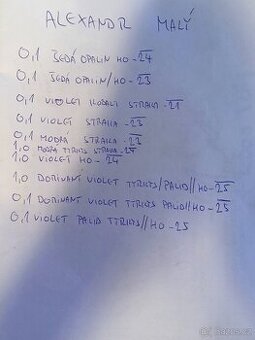 ALEXANDR MALÝ
0,1 ŠEDÁ OPALIN HO - 24
0,1 ŠEDÁ OPALIN/HO - 23
0,1 VIOLET KOBALT STRAKA - 21
0,1 VIOLET STRAKA - 23
0,1 MODRÁ STRAKA - 23
1,0 MODRÁ TTRKYS STRAKA - 24
1,0 VIOLET HO - 24
1,0 DORINANT VIOLET TTRKYS/PALID//HO - 25
0,1 DORINANT VIOLET TTRKYS PALID//HO - 25
0,1 VIOLET PALID TTRKYS//HO - 25
Bazoš.cz